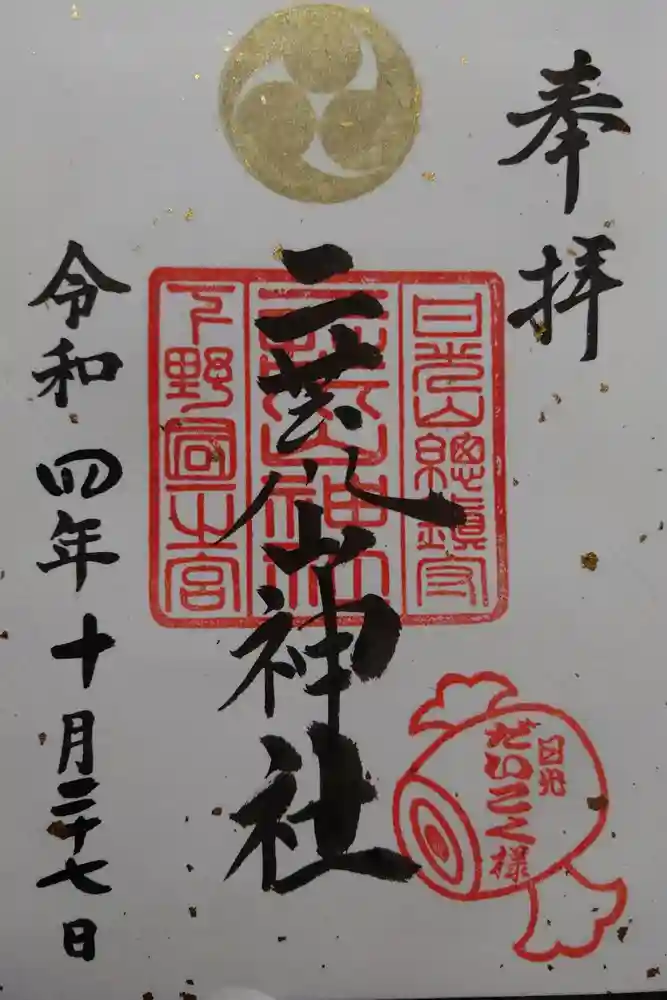 奉拝
日光山總鎮守
二荒山神社
下野國一之宮
二荒山神社
令和四年十月二十七日
日光
だいこく様